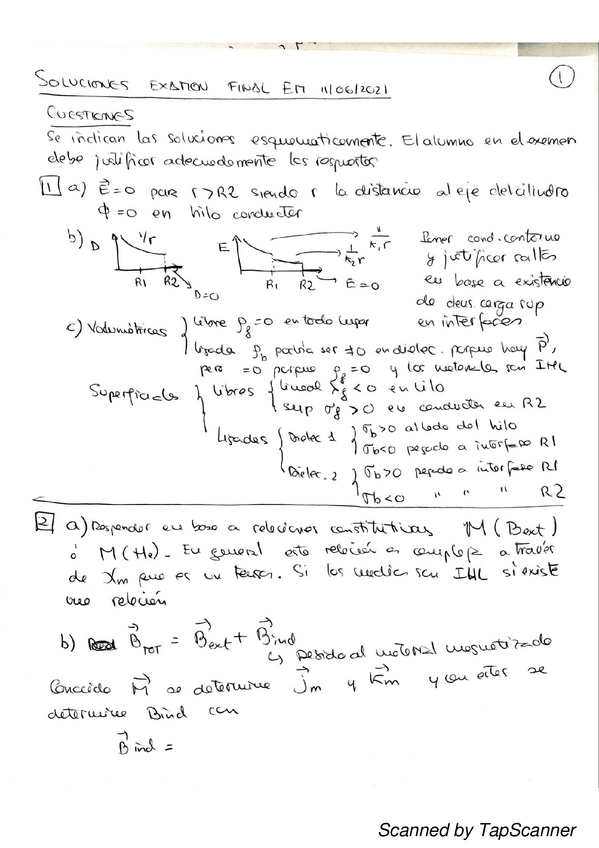 SOLUCIONES EXAMEN FINAL EM 11/06/2021
1
CUESTIONES
Se indican las soluciones esquematicamente. El alumno en el examen
debe justificar adecuadamente las respuestas
1 a) E⃗=0 para r>R2 siendo r la distancia al eje del cilindro
Φ=0 en hilo conductor
b) D 1/r R1 R2 D=0
E 1/K₁r 1/K₂r R1 R2 E=0
Poner cond. contorno
y justificar saltos
en base a existencia
de dens carga sup
en interfases
c) Volumétricas { libre ρf=0 en todo lugar
ligada ρb podría ser ≠0 en dielec. porque hay P⃗,
pero =0 porque ρf=0 y los materiales son IHL
Superficiales { libres { lineal λf<0 en hilo
sup σf>0 en conductor en R2
ligadas { Dielec 1 { σb>0 al lado del hilo
σb<0 pegado a interfase R1
Dielec. 2 { σb>0 pegado a interfase R1
σb<0 " " " R2
2 a) Responder en base a relaciones constitutivas M(Bext)
ó M(He). En general esta relación es compleja a través
de Xm que es un tensor. Si los medios son IHL sí existe
una relación
b) B⃗TOT = B⃗ext + B⃗ind
↳ Debido al material magnetizado
Conocido M⃗ se determina j⃗m y K⃗m y con estas se
determina Bind con
B⃗ind =
Scanned by TapScanner